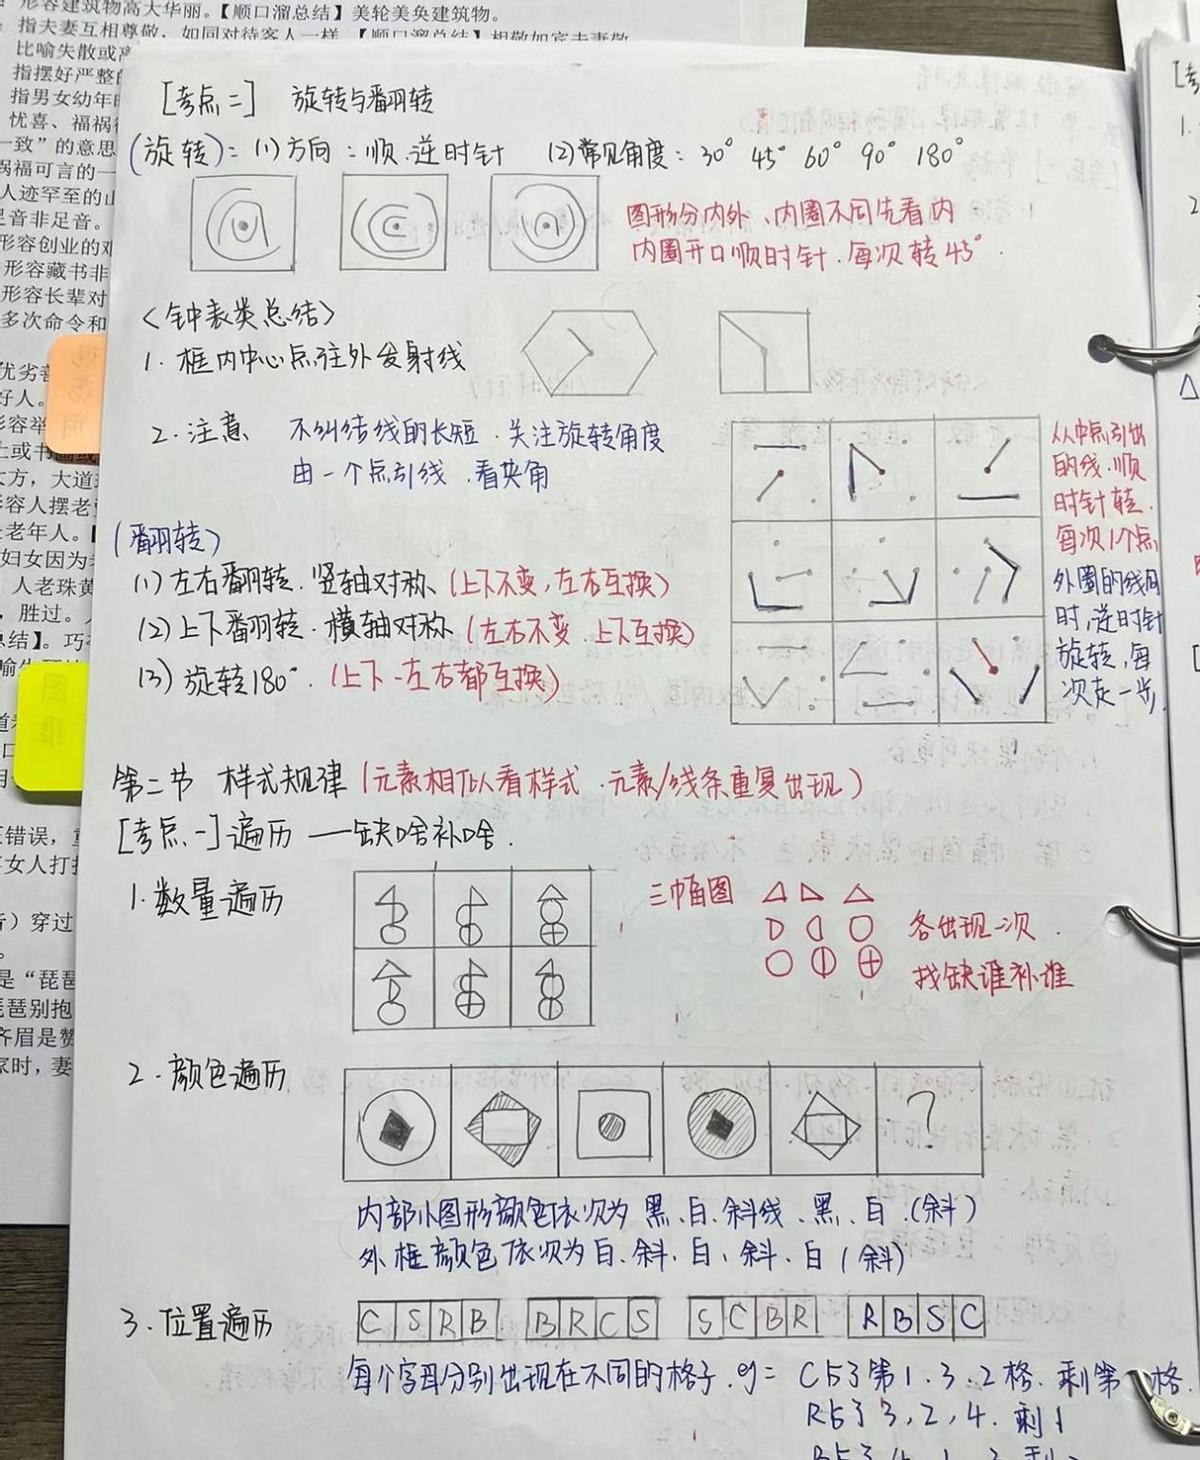 形容建筑物高大华丽。【顺口溜总结】美轮美奂建筑物。
指夫妻互相尊敬，如同对待客人一样。【顺口溜总结】相敬如宾夫妻敬
比喻失散或
指摆好严整的
指男女幼年
忧喜、福祸
一致”的意思
祸福可言的一
人迹罕至的山
足音非足音。
形容创业的艰
形容藏书非
形容长辈对
多次命令和
[考点二] 旋转与翻转
(旋转)：(1)方向：顺.逆时针 (2)常见角度：30° 45° 60° 90° 180°
图形分内外、内圈不同先看内
内圈开口顺时针.每次转45°.
<钟表类总结>
1.框内中心点往外发射线
2.注意 不纠结线的长短.关注旋转角度
由一个点引线.看夹角
从中点引出
的线.顺
时针转.
每次1个点
外圈的线同
时,逆时针
旋转,每
次走一步.
(翻转)
(1)左右翻转.竖轴对称(上下不变,左右互换)
(2)上下翻转.横轴对称(左右不变.上下互换)
(3)旋转180°.(上下-左右都互换)
第二节 样式规律(元素相似看样式.元素/线条重复出现)
[考点一]遍历——缺啥补啥.
1.数量遍历
三幅图
各出现一次.
找缺谁补谁
2.颜色遍历
?
内部小图形颜色依次为黑、白、斜线、黑、白.(斜)
外框颜色依次为白、斜、白、斜、白(斜)
3.位置遍历
C S R B B R C S S C B R R B S C
每个字母分别出现在不同的格子.eg= C占了第1.3.2格.剩第 格.
R占了3,2,4.剩1